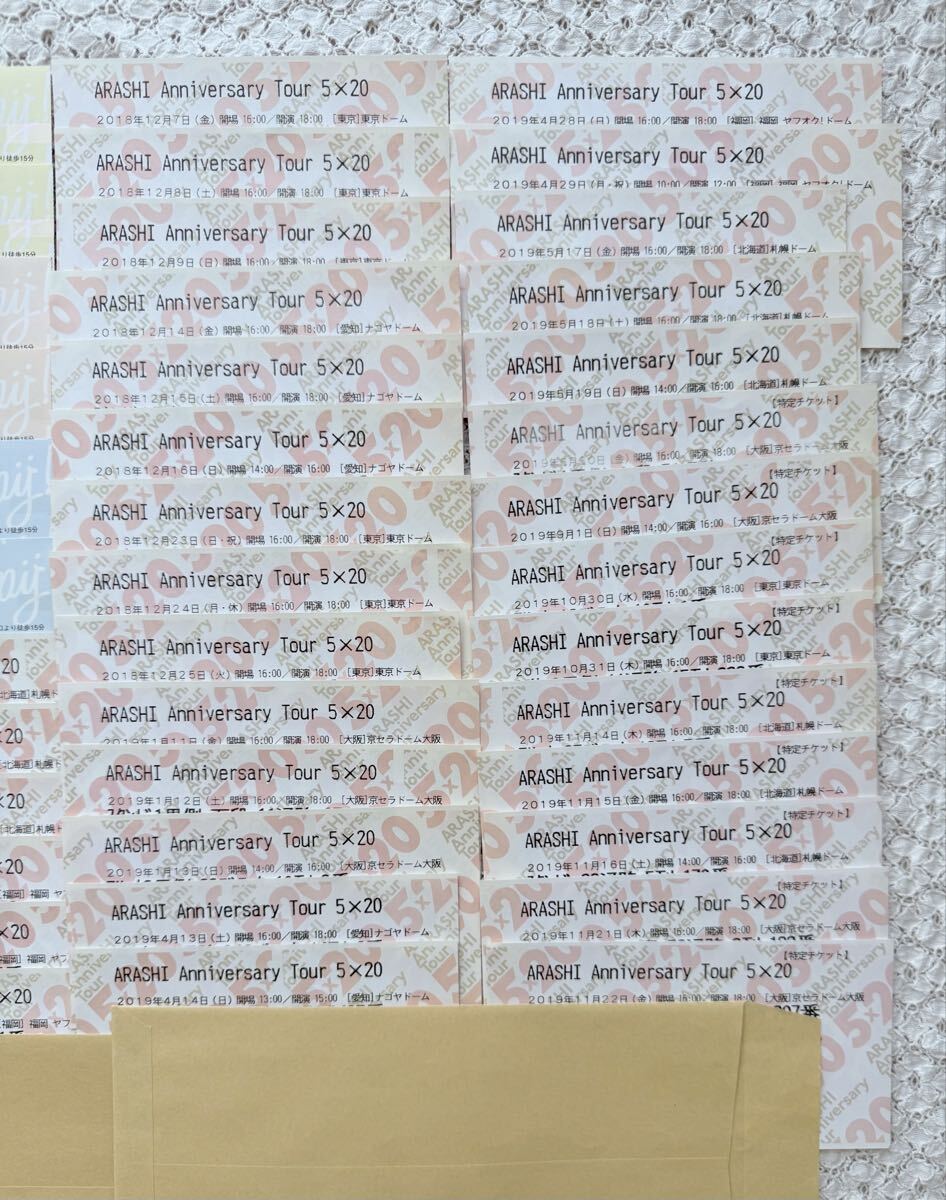 ARASHI Anniversary Tour 5×20
2018年12月7日(金) 開場 16:00/開演 18:00 [東京]東京ドーム
ARASHI Anniversary Tour 5×20
2018年12月8日(土) 開場 16:00/開演 18:00 [東京]東京ドーム
ARASHI Anniversary Tour 5×20
2018年12月9日(日) 開場 16:00/開演 18:00 [東京]東京ドーム
ARASHI Anniversary Tour 5×20
2018年12月14日(金) 開場 16:00/開演 18:00 [愛知]ナゴヤドーム
ARASHI Anniversary Tour 5×20
2018年12月15日(土) 開場 16:00/開演 18:00 [愛知]ナゴヤドーム
ARASHI Anniversary Tour 5×20
2018年12月16日(日) 開場 14:00/開演 16:00 [愛知]ナゴヤドーム
ARASHI Anniversary Tour 5×20
2018年12月23日(日・祝) 開場 16:00/開演 18:00 [東京]東京ドーム
ARASHI Anniversary Tour 5×20
2018年12月24日(月・休) 開場 16:00/開演 18:00 [東京]東京ドーム
ARASHI Anniversary Tour 5×20
2018年12月25日(火) 開場 16:00/開演 18:00 [東京]東京ドーム
ARASHI Anniversary Tour 5×20
2019年1月11日(金) 開場 16:00/開演 18:00 [大阪]京セラドーム大阪
ARASHI Anniversary Tour 5×20
2019年1月12日(土) 開場 16:00/開演 18:00 [大阪]京セラドーム大阪
ARASHI Anniversary Tour 5×20
2019年1月13日(日) 開場 14:00/開演 16:00 [大阪]京セラドーム大阪
ARASHI Anniversary Tour 5×20
2019年4月13日(土) 開場 16:00/開演 18:00 [愛知]ナゴヤドーム
ARASHI Anniversary Tour 5×20
2019年4月14日(日) 開場 13:00/開演 15:00 [愛知]ナゴヤドーム
ARASHI Anniversary Tour 5×20
2019年4月28日(日) 開場 16:00/開演 18:00 [福岡]福岡 ヤフオク!ドーム
ARASHI Anniversary Tour 5×20
2019年4月29日(月・祝) 開場 10:00/開演 12:00 [福岡]福岡 ヤフオク!ドーム
ARASHI Anniversary Tour 5×20
2019年5月17日(金) 開場 16:00/開演 18:00 [北海道]札幌ドーム
ARASHI Anniversary Tour 5×20
2019年5月18日(土) 開場 16:00/開演 18:00 [北海道]札幌ドーム
ARASHI Anniversary Tour 5×20
2019年5月19日(日) 開場 14:00/開演 16:00 [北海道]札幌ドーム
【特定チケット】
ARASHI Anniversary Tour 5×20
(金) 開場 16:00/開演 18:00 [大阪]京セラドーム大阪
【特定チケット】
ARASHI Anniversary Tour 5×20
2019年9月1日(日) 開場 14:00/開演 16:00 [大阪]京セラドーム大阪
【特定チケット】
ARASHI Anniversary Tour 5×20
2019年10月30日(水) 開場 16:00/開演 18:00 [東京]東京ドーム
【特定チケット】
ARASHI Anniversary Tour 5×20
2019年10月31日(木) 開場 16:00/開演 18:00 [東京]東京ドーム
【特定チケット】
ARASHI Anniversary Tour 5×20
2019年11月14日(木) 開場 16:00/開演 18:00 [北海道]札幌ドーム
【特定チケット】
ARASHI Anniversary Tour 5×20
2019年11月15日(金) 開場 16:00/開演 18:00 [北海道]札幌ドーム
【特定チケット】
ARASHI Anniversary Tour 5×20
2019年11月16日(土) 開場 14:00/開演 16:00 [北海道]札幌ドーム
【特定チケット】
ARASHI Anniversary Tour 5×20
2019年11月21日(木) 開場 16:00/開演 18:00 [大阪]京セラドーム大阪
【特定チケット】
ARASHI Anniversary Tour 5×20
2019年11月22日(金) 開場 16:00/開演 18:00 [大阪]京セラドーム大阪